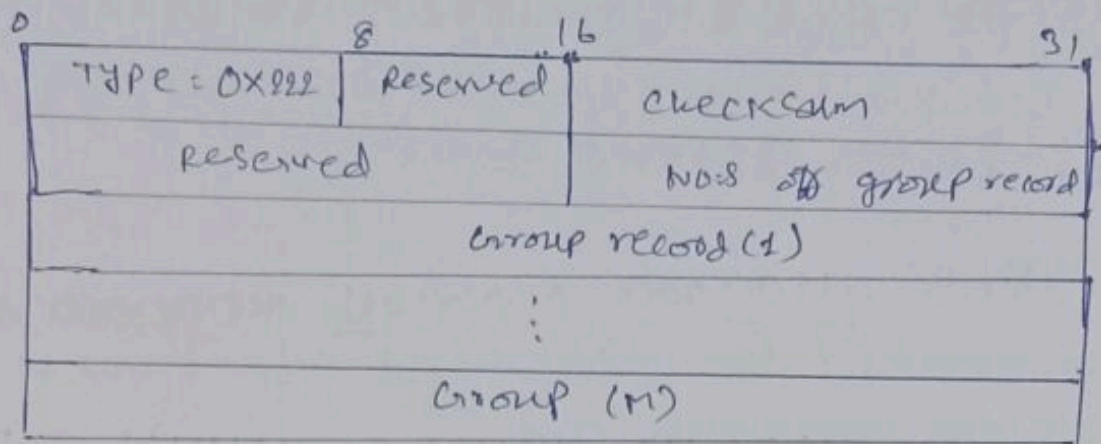 0 8 16 31
TYPE = 0X222 Reserved checksum
Reserved No:s of group record
Group record (1)
Group (M)